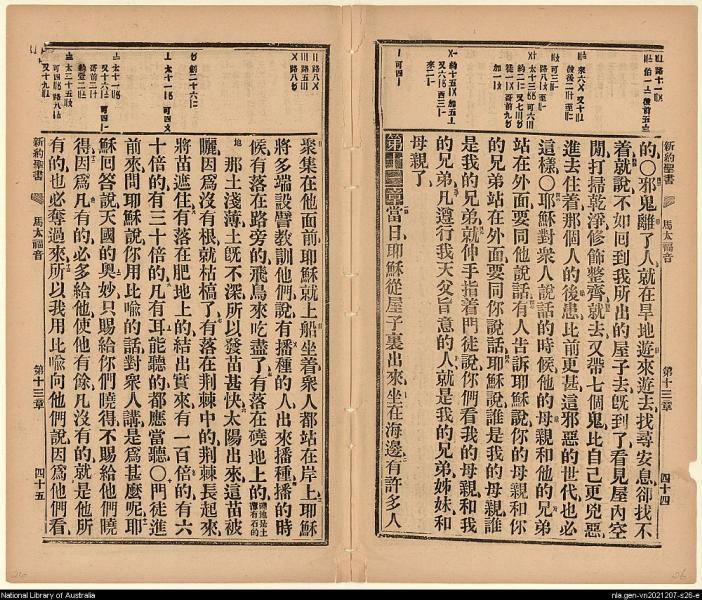 新約聖書
馬太福音
第十三章
四十四
的○邪鬼離了人就在旱地遊來遊去找尋安息卻找不
着就說不如回到我所出的屋子去旣到了看見屋內空
閒打掃乾淨修飾整齊就去又帶七個鬼比自己更兇惡
進去住着那個人的後患比前更甚這邪惡的世代也必
這樣○耶穌對衆人說話的時候他的母親和他的兄弟
站在外面要同他說話有人告訴耶穌說你的母親和你
的兄弟站在外面要同你說話耶穌說誰是我的母親誰
是我的兄弟就伸手指着門徒說你們看我的母親和我
的兄弟凡遵行我天父旨意的人就是我的兄弟姊妹和
母親了
第十三章當日耶穌從屋子裏出來坐在海邊有許多人
聚集在他面前耶穌就上船坐着衆人都站在岸上耶穌
將多端設譬教訓他們說有播種的人出來播種播的時
候有落在路旁的飛鳥來吃盡了有落在磽地上的
地那土淺薄土旣不深所以發苗甚快太陽出來這苗被
曬因爲沒有根就枯槁了有落在荆棘中的荆棘長起來
將苗遮住有落在肥地上的結出實來有一百倍的有六
十倍的有三十倍的凡有耳能聽的都應當聽○門徒進
前來問耶穌說你用比喩的話對衆人講是爲甚麼呢耶
穌回答說天國的奧妙只賜給你們曉得不賜給他們曉
得因爲凡有的必多給他使他有餘凡沒有的就是他所
有的也必奪過來所以我用比喩向他們說因爲他們看
新約聖書
馬太福音
第十三章
四十五
National Library of Australia
nla.gen-vn2021207-s26-e